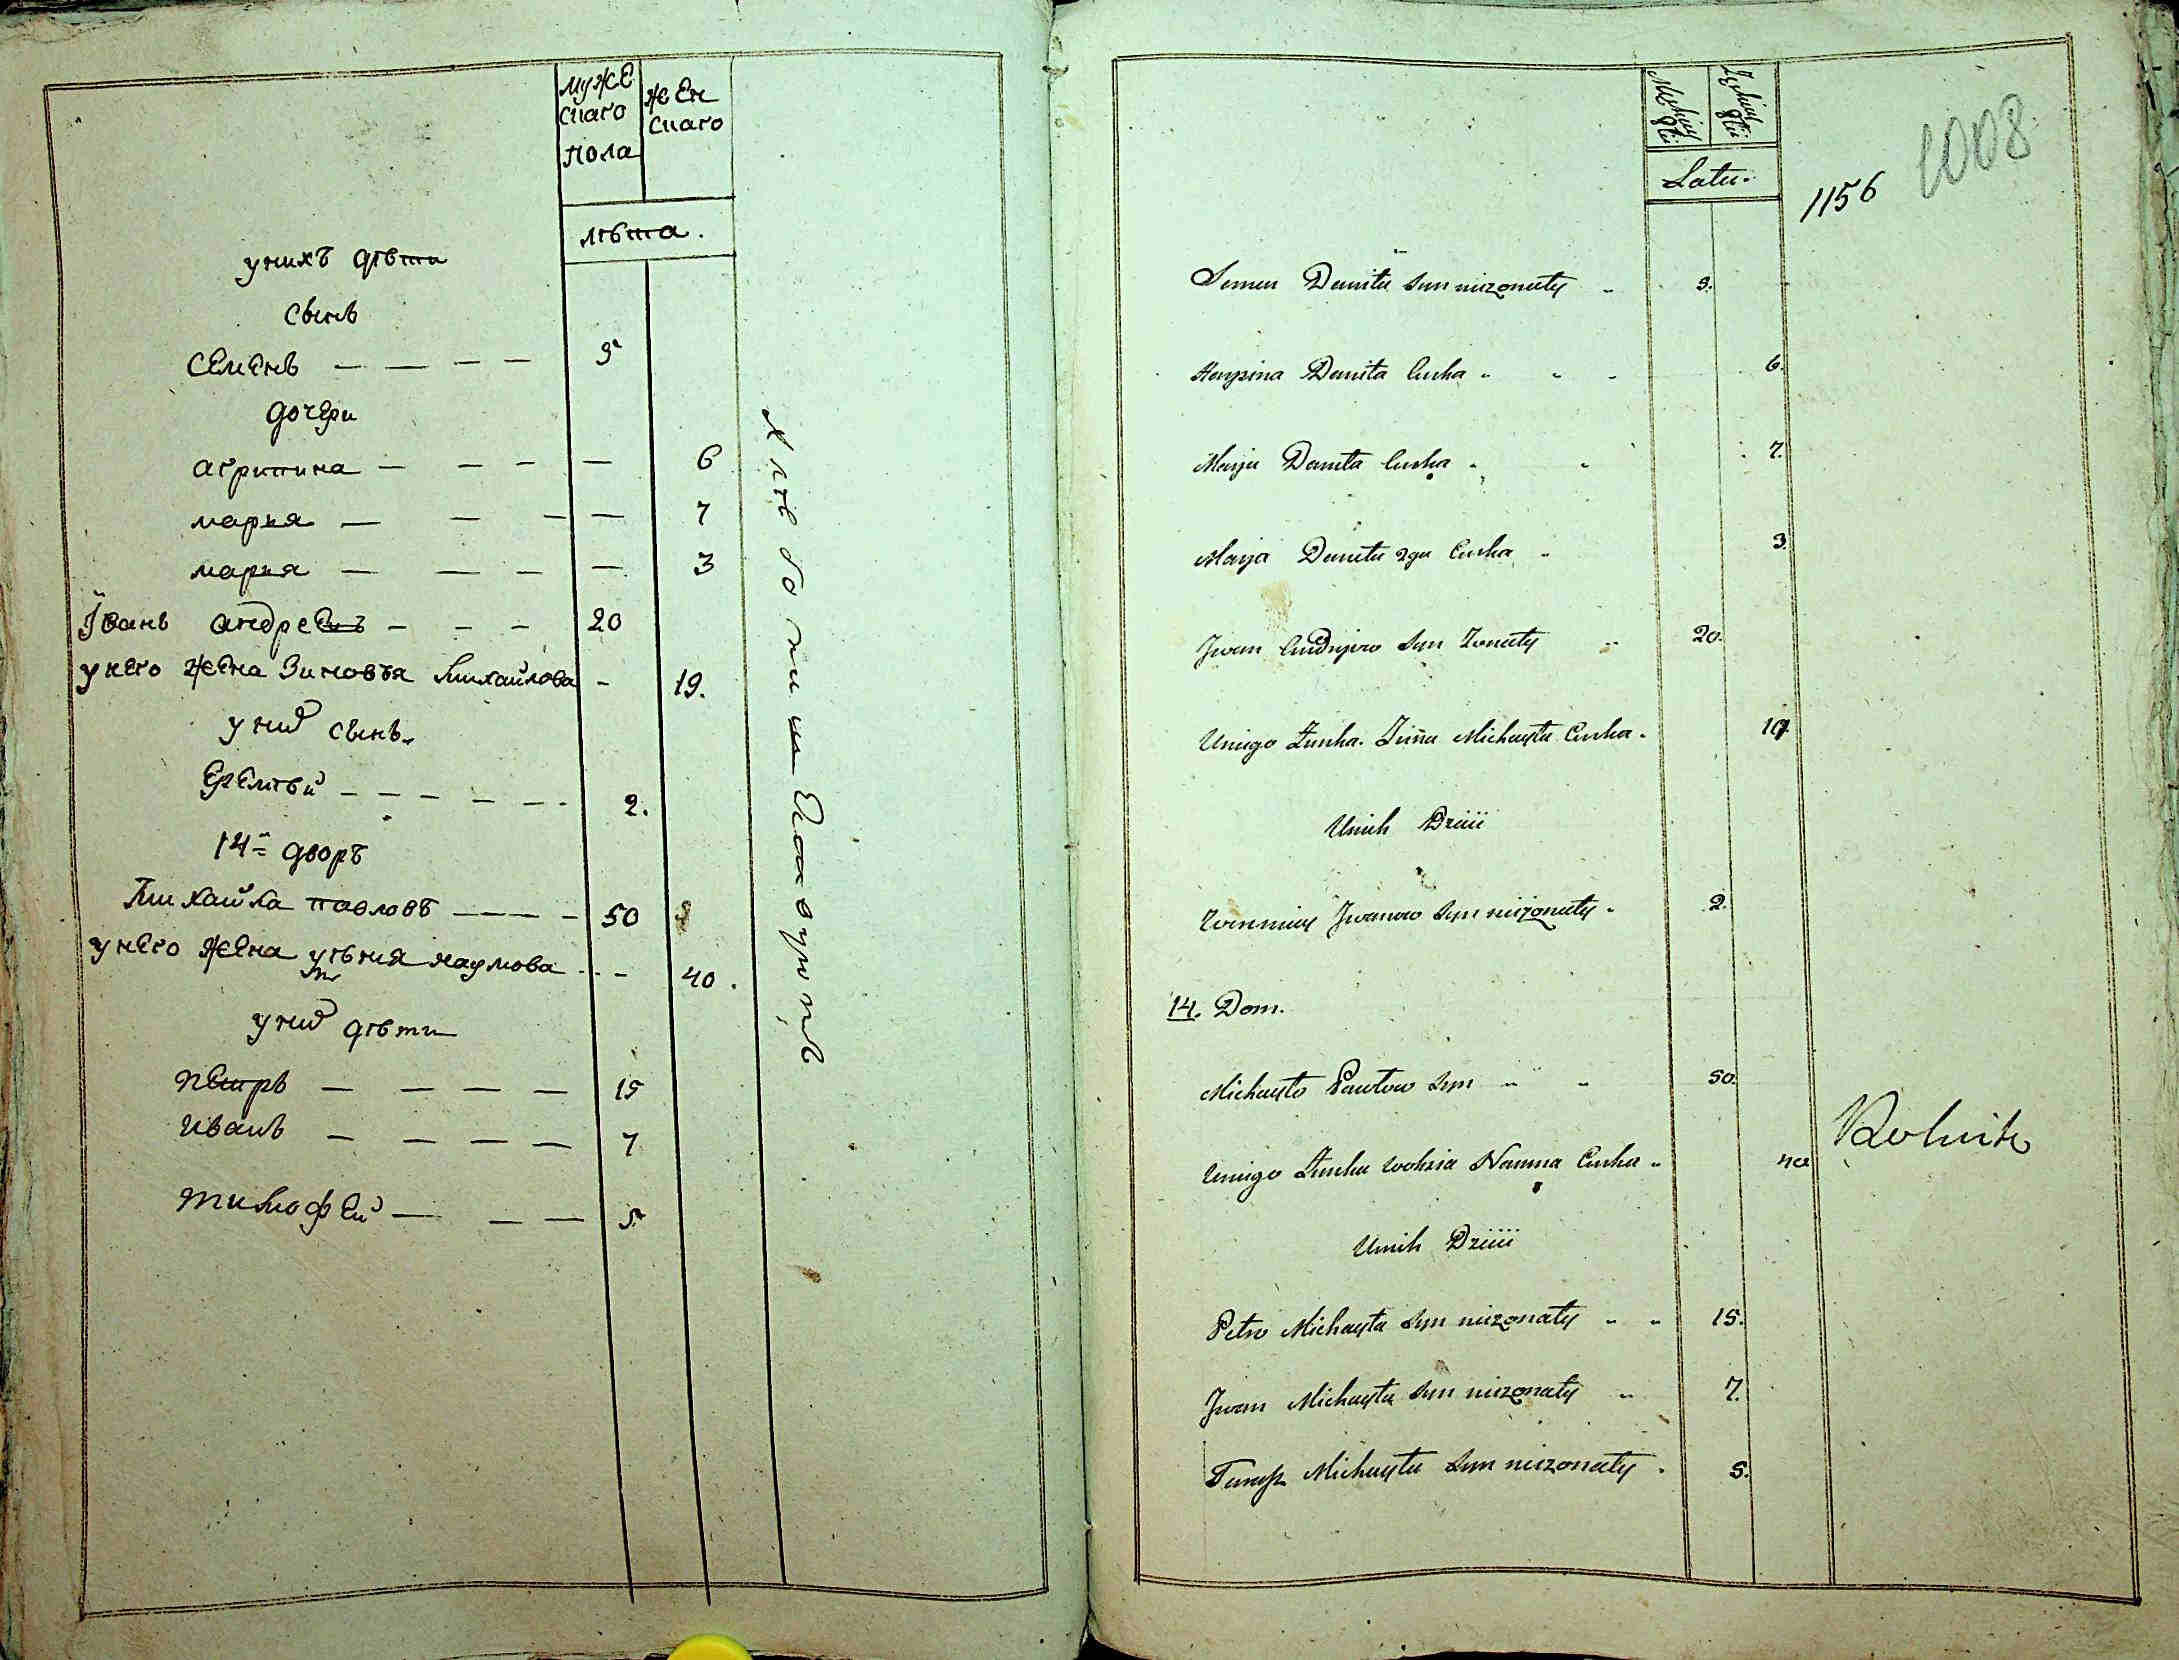 муже
скаго
пола
жен
скаго
лѣта.
унихъ дѣти
сынъ
семенъ — — — — 9
дочери
агрипина — — — — 6
марья — — — — 7
марья — — — — 3
Їванъ андреевъ — — — 20
унего жена Зиновья Михайлова — 19.
уних сынъ.
Еремѣй — — — — — — 2.
14й дворъ
Михайла павловъ — — — — 50
унего жена устѣния наумова - - 40.
уних дѣти
петръ — — — — 15
иванъ — — — — 7
тимофей — — — 5
Хлѣбопашецъ
Męzkiey Płci
Zęskiey Płci
Latu.
1156
1008
Semen Daniła syn niezonaty 9.
Harpina Daniła Curka 6.
Marja Daniła Curka 7.
Marja Daniła 2ga Curka 3.
Jwan Andryiew syn Zonaty 20.
Uniego Zunka. Zina Michayła Curka. 19.
Unich Dzieci
Jwanow syn niezonaty. 2.
14. Dom.
Michayło Pawłow syn 50.
Uniego Zunka Nauma Curka 40
Unich Dzieci
Petro Michayła syn niezonaty 15.
Jwan Michayła syn niezonaty 7.
Michayła syn niezonaty. 5.
Rolnik